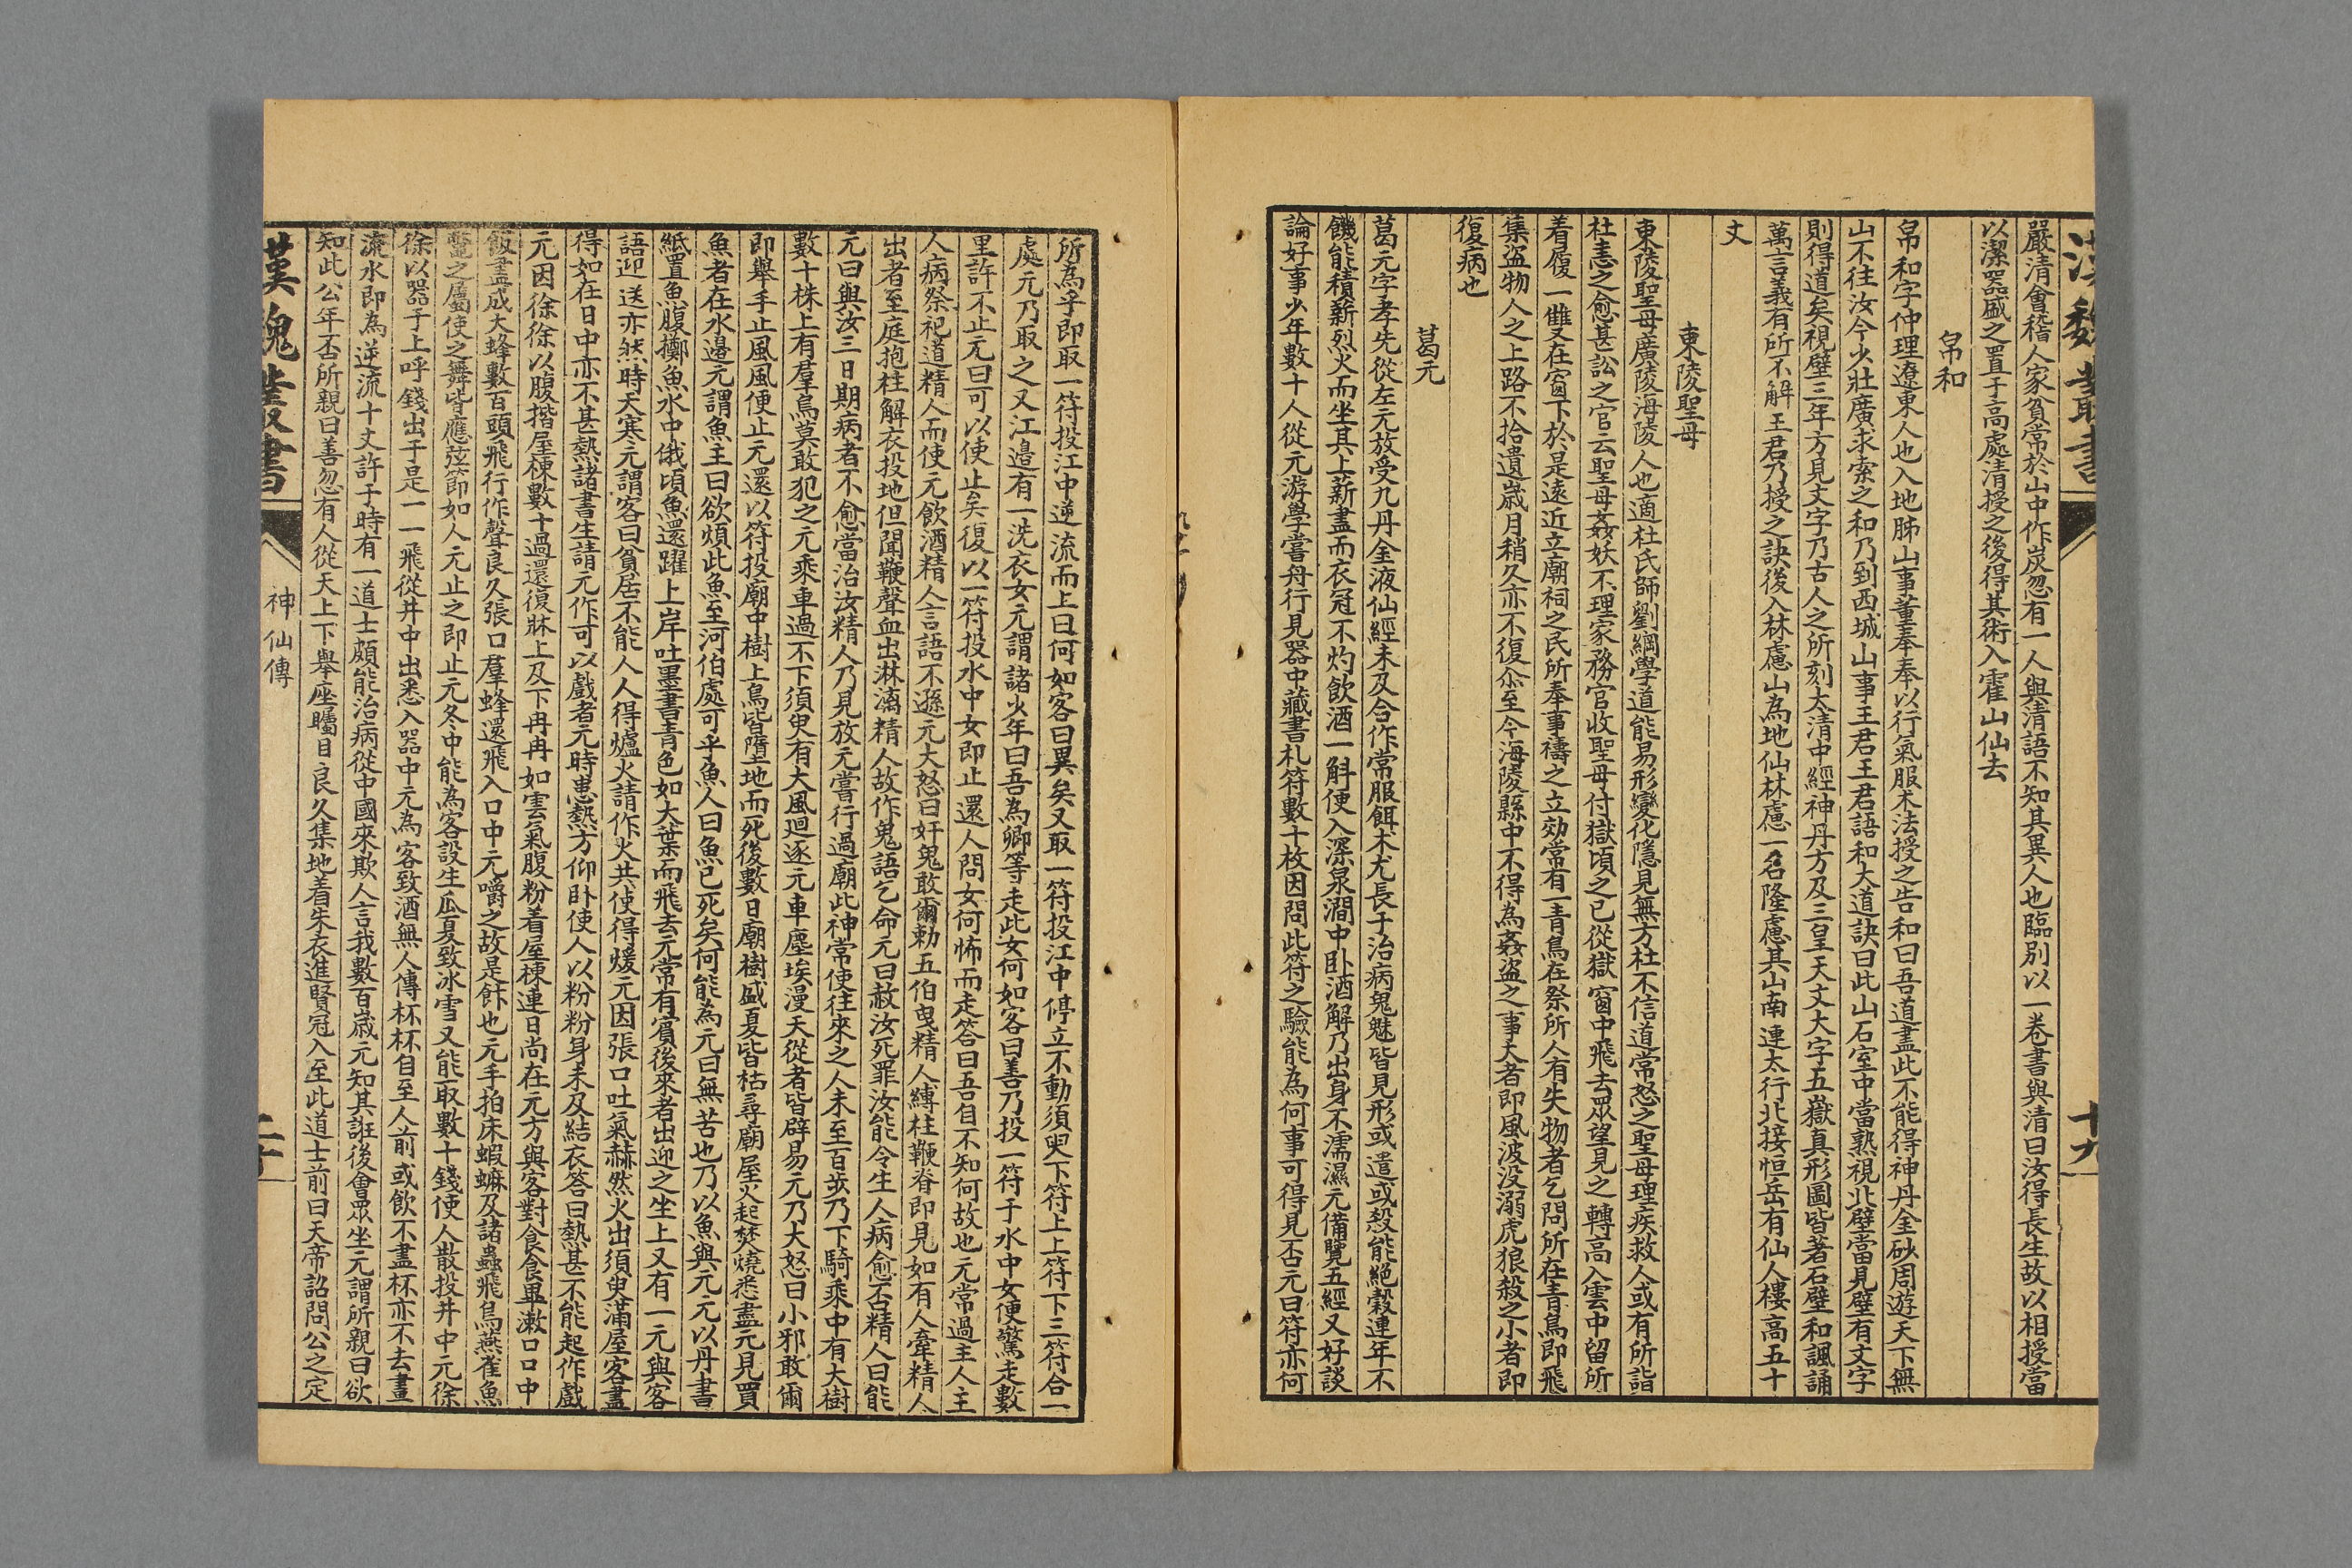 漢魏叢書
十九
嚴清會稽人家貧常於山中作炭忽有一人與清語不知其異人也臨別以一卷書與清曰汝得長生故以相授當
以潔器盛之置于高處清授之後得其術入霍山仙去
帛和
帛和字仲理遼東人也入地肺山事董奉奉以行氣服术法授之告和曰吾道盡此不能得神丹金砂周遊天下無
山不往汝今少壯廣求索之和乃到西城山事王君王君語和大道訣曰此山石室中當熟視北壁當見壁有文字
則得道矣視壁三年方見文字乃古人之所刻太清中經神丹方及三皇天文大字五嶽真形圖皆著石壁和諷誦
萬言義有所不解王君乃授之訣後入林慮山為地仙林慮一名隆慮其山南連太行北接恒岳有仙人樓高五十
丈
東陵聖母
東陵聖母廣陵海陵人也適杜氏師劉綱學道能易形變化隱見無方杜不信道常怒之聖母理疾救人或有所詣
杜恚之愈甚訟之官云聖母姦妖不理家務官收聖母付獄頃之已從獄窗中飛去眾望見之轉高入雲中留所
着履一雙在窗下於是遠近立廟祠之民所奉事禱之立効常有一青鳥在祭所人有失物者乞問所在青鳥即飛
集盜物人之上路不拾遺歲月稍久亦不復尒至今海陵縣中不得為姦盜之事大者即風波沒溺虎狼殺之小者即
復病也
葛元
葛元字孝先從左元放受九丹金液仙經未及合作常服餌木尤長于治病鬼魅皆見形或遣或殺能絕穀連年不
饑能積薪烈火而坐其上薪盡而衣冠不灼飲酒一斛便入深泉澗中臥酒解乃出身不濡濕元備覽五經又好談
論好事少年數十人從元游學嘗舟行見器中藏書札符數十枚因問此符之驗能為何事可得見否元曰符亦何
所為乎即取一符投江中逆流而上曰何如客曰異矣又取一符投江中停立不動須臾下符上上符下三符合一
處元乃取之又江邊有一洗衣女元謂諸少年曰吾為卿等走此女何如客曰善乃投一符于水中女便驚走數
里許不止元曰可以使止矣復以一符投水中女即止還人問女何怖而走答曰吾自不知何故也元常過主人主
人病祭祀道精人而使元飲酒精人言語不遜元大怒曰奸鬼敢爾勅五伯曳精人縛柱鞭脊即見如有人牽精人
出者至庭抱柱解衣投地但聞鞭聲血出淋漓精人故作鬼語乞命元曰赦汝死罪汝能令生人病愈否精人曰能
元曰與汝三日期病者不愈當治汝精人乃見放元嘗行過廟此神常使往來之人未至百步乃下騎乘中有大樹
數十株上有羣鳥莫敢犯之元乘車過不下須臾有大風迴逐元車塵埃漫天從者皆辟易元乃大怒曰小邪敢爾
即舉手止風風便止元還以符投廟中樹上鳥皆墮地而死後數日廟樹盛夏皆枯尋廟屋火起焚燒悉盡元見買
魚者在水邊元謂魚主曰欲煩此魚至河伯處可乎魚人曰魚已死矣何能為元曰無苦也乃以魚與元元以丹書
紙置魚腹擲魚水中俄頃魚還躍上岸吐墨書青色如大葉而飛去元常有賓後來者出迎之坐上又有一元與客
語迎送亦然時天寒元謂客曰貧居不能人人得爐火請作火共使得煖元因張口吐氣赫然火出須臾滿屋客盡
得如在日中亦不甚熱諸書生請元作可以戲者元時患熱方仰臥使人以粉粉身未及結衣答曰熱甚不能起作戲
元因徐徐以腹揩屋棟數十過還復牀上及下冉冉如雲氣腹粉着屋棟連日尚在元方與客對食食畢漱口口中
飯盡成大蜂數百頭飛行作聲良久張口羣蜂還飛入口中元嚼之故是飰也元手拍床蝦蟆及諸蟲飛鳥燕雀魚
鱉之屬使之舞皆應弦節如人元止之即止元冬中能為客設生瓜夏致冰雪又能取數十錢使人散投井中元徐
徐以器于上呼錢出于是一一飛從井中出悉入器中元為客致酒無人傳杯杯自至人前或飲不盡杯亦不去畫
流水即為逆流十丈許于時有一道士頗能治病從中國來欺人言我數百歲元知其誑後會眾坐元謂所親曰欲
知此公年否所親曰善忽有人從天上下舉座矚目良久集地着朱衣進賢冠入至此道士前曰天帝詔問公之定
漢魏叢書
神仙傳
二十